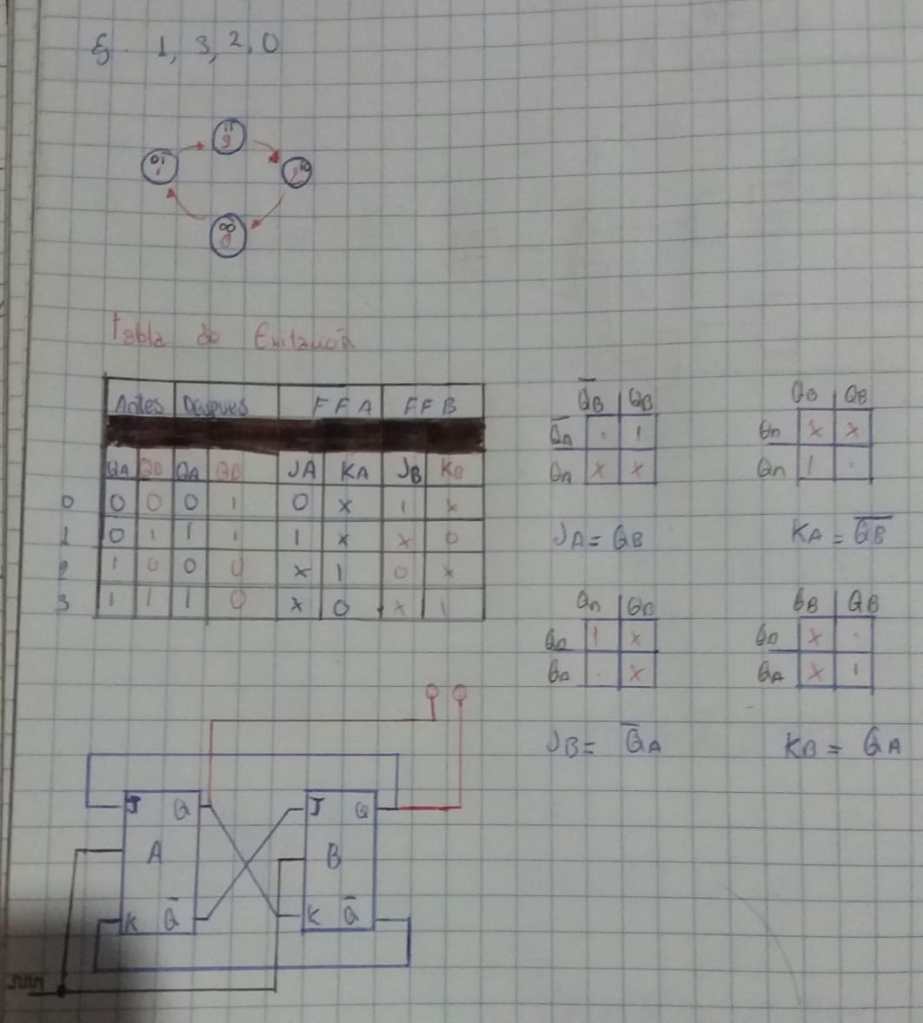 1, 3, 2, 0
11
3
01
1
10
2
00
0
Tabla de Exitación
Antes Despues FFA FFB
QA QB QA QB JA KA JB KB
0 0 0 0 1 0 x 1 x
1 0 1 1 1 1 x x 0
2 1 0 0 0 x 1 0 x
3 1 1 1 0 x 0 x 1
Q̅B QB
Q̅A . 1
QA x x
JA = QB
QB QB
QA x x
QA 1 .
KA = Q̅B̅
QB QB
QA 1 x
QA . x
JB = Q̅A
QB QB
QA x .
QA x 1
KB = QA
J Q
A
K Q̅
J Q
B
K Q̅